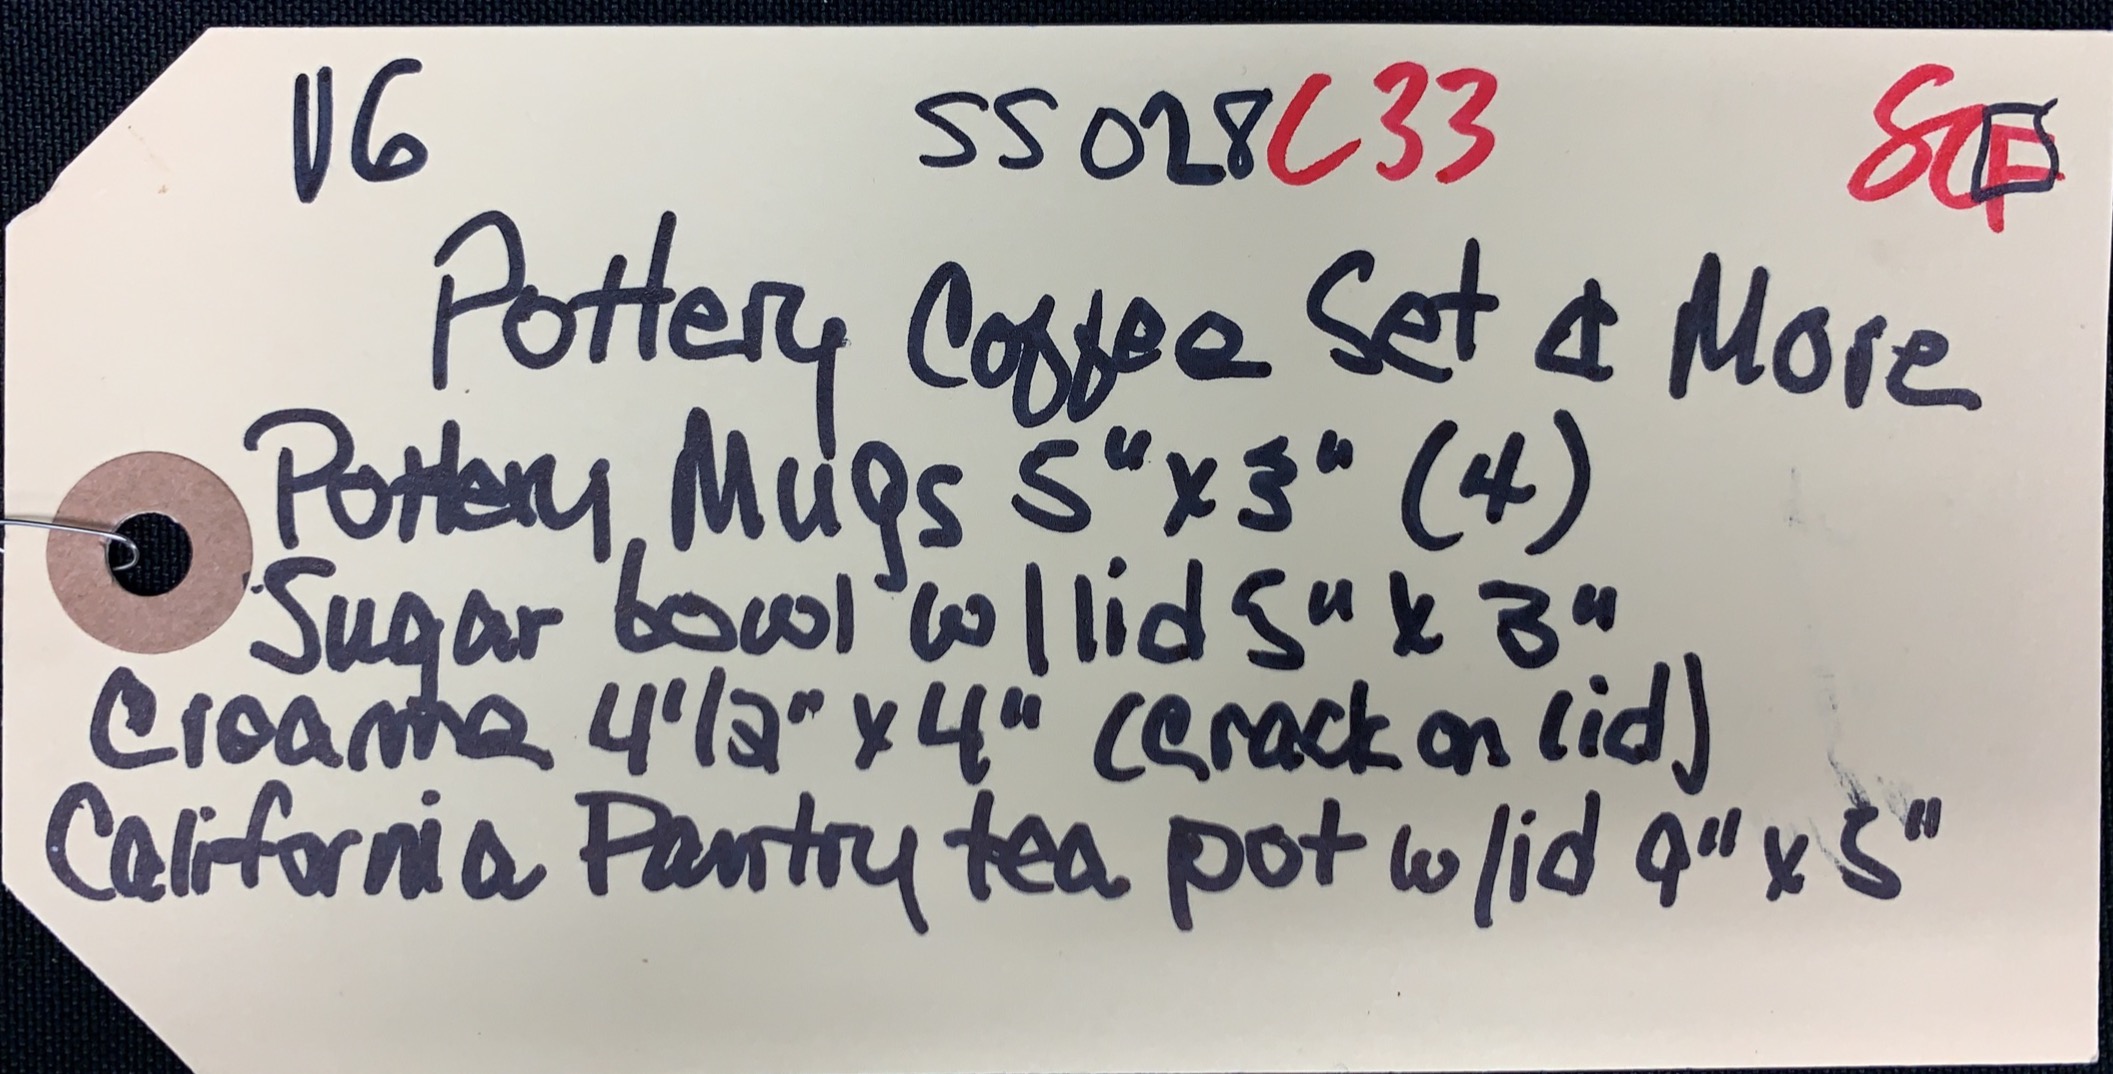 V6 SS028C33
Pottery Coffee Set & More
Pottery Mugs 5" x 3" (4)
Sugar bowl w/lid 5" x 3"
Creame 4 1/2" x 4" (crack on lid)
California Pantry tea pot w/lid 9" x 5"